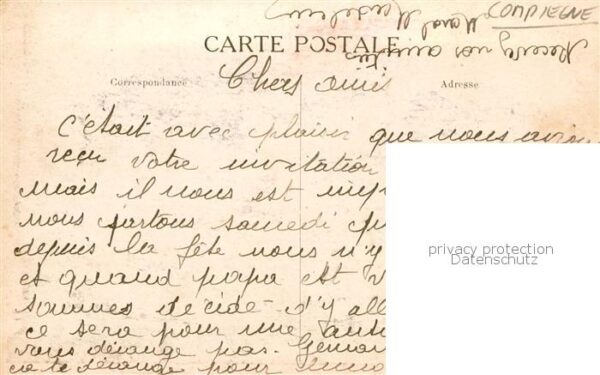 COMPIEGNE
Recevez nos amitiés
CARTE POSTALE
Correspondance
Adresse
Chers amis
c'était avec plaisir que nous avion
reçu votre invitation
mais il nous est imp
nous partons samedi
depuis la fête nous n'y
et quand papa est v
sommes décidé d'y all
ce sera pour une aut
vous dérange pas.
ça te dérange pour
privacy protection
Datenschutz